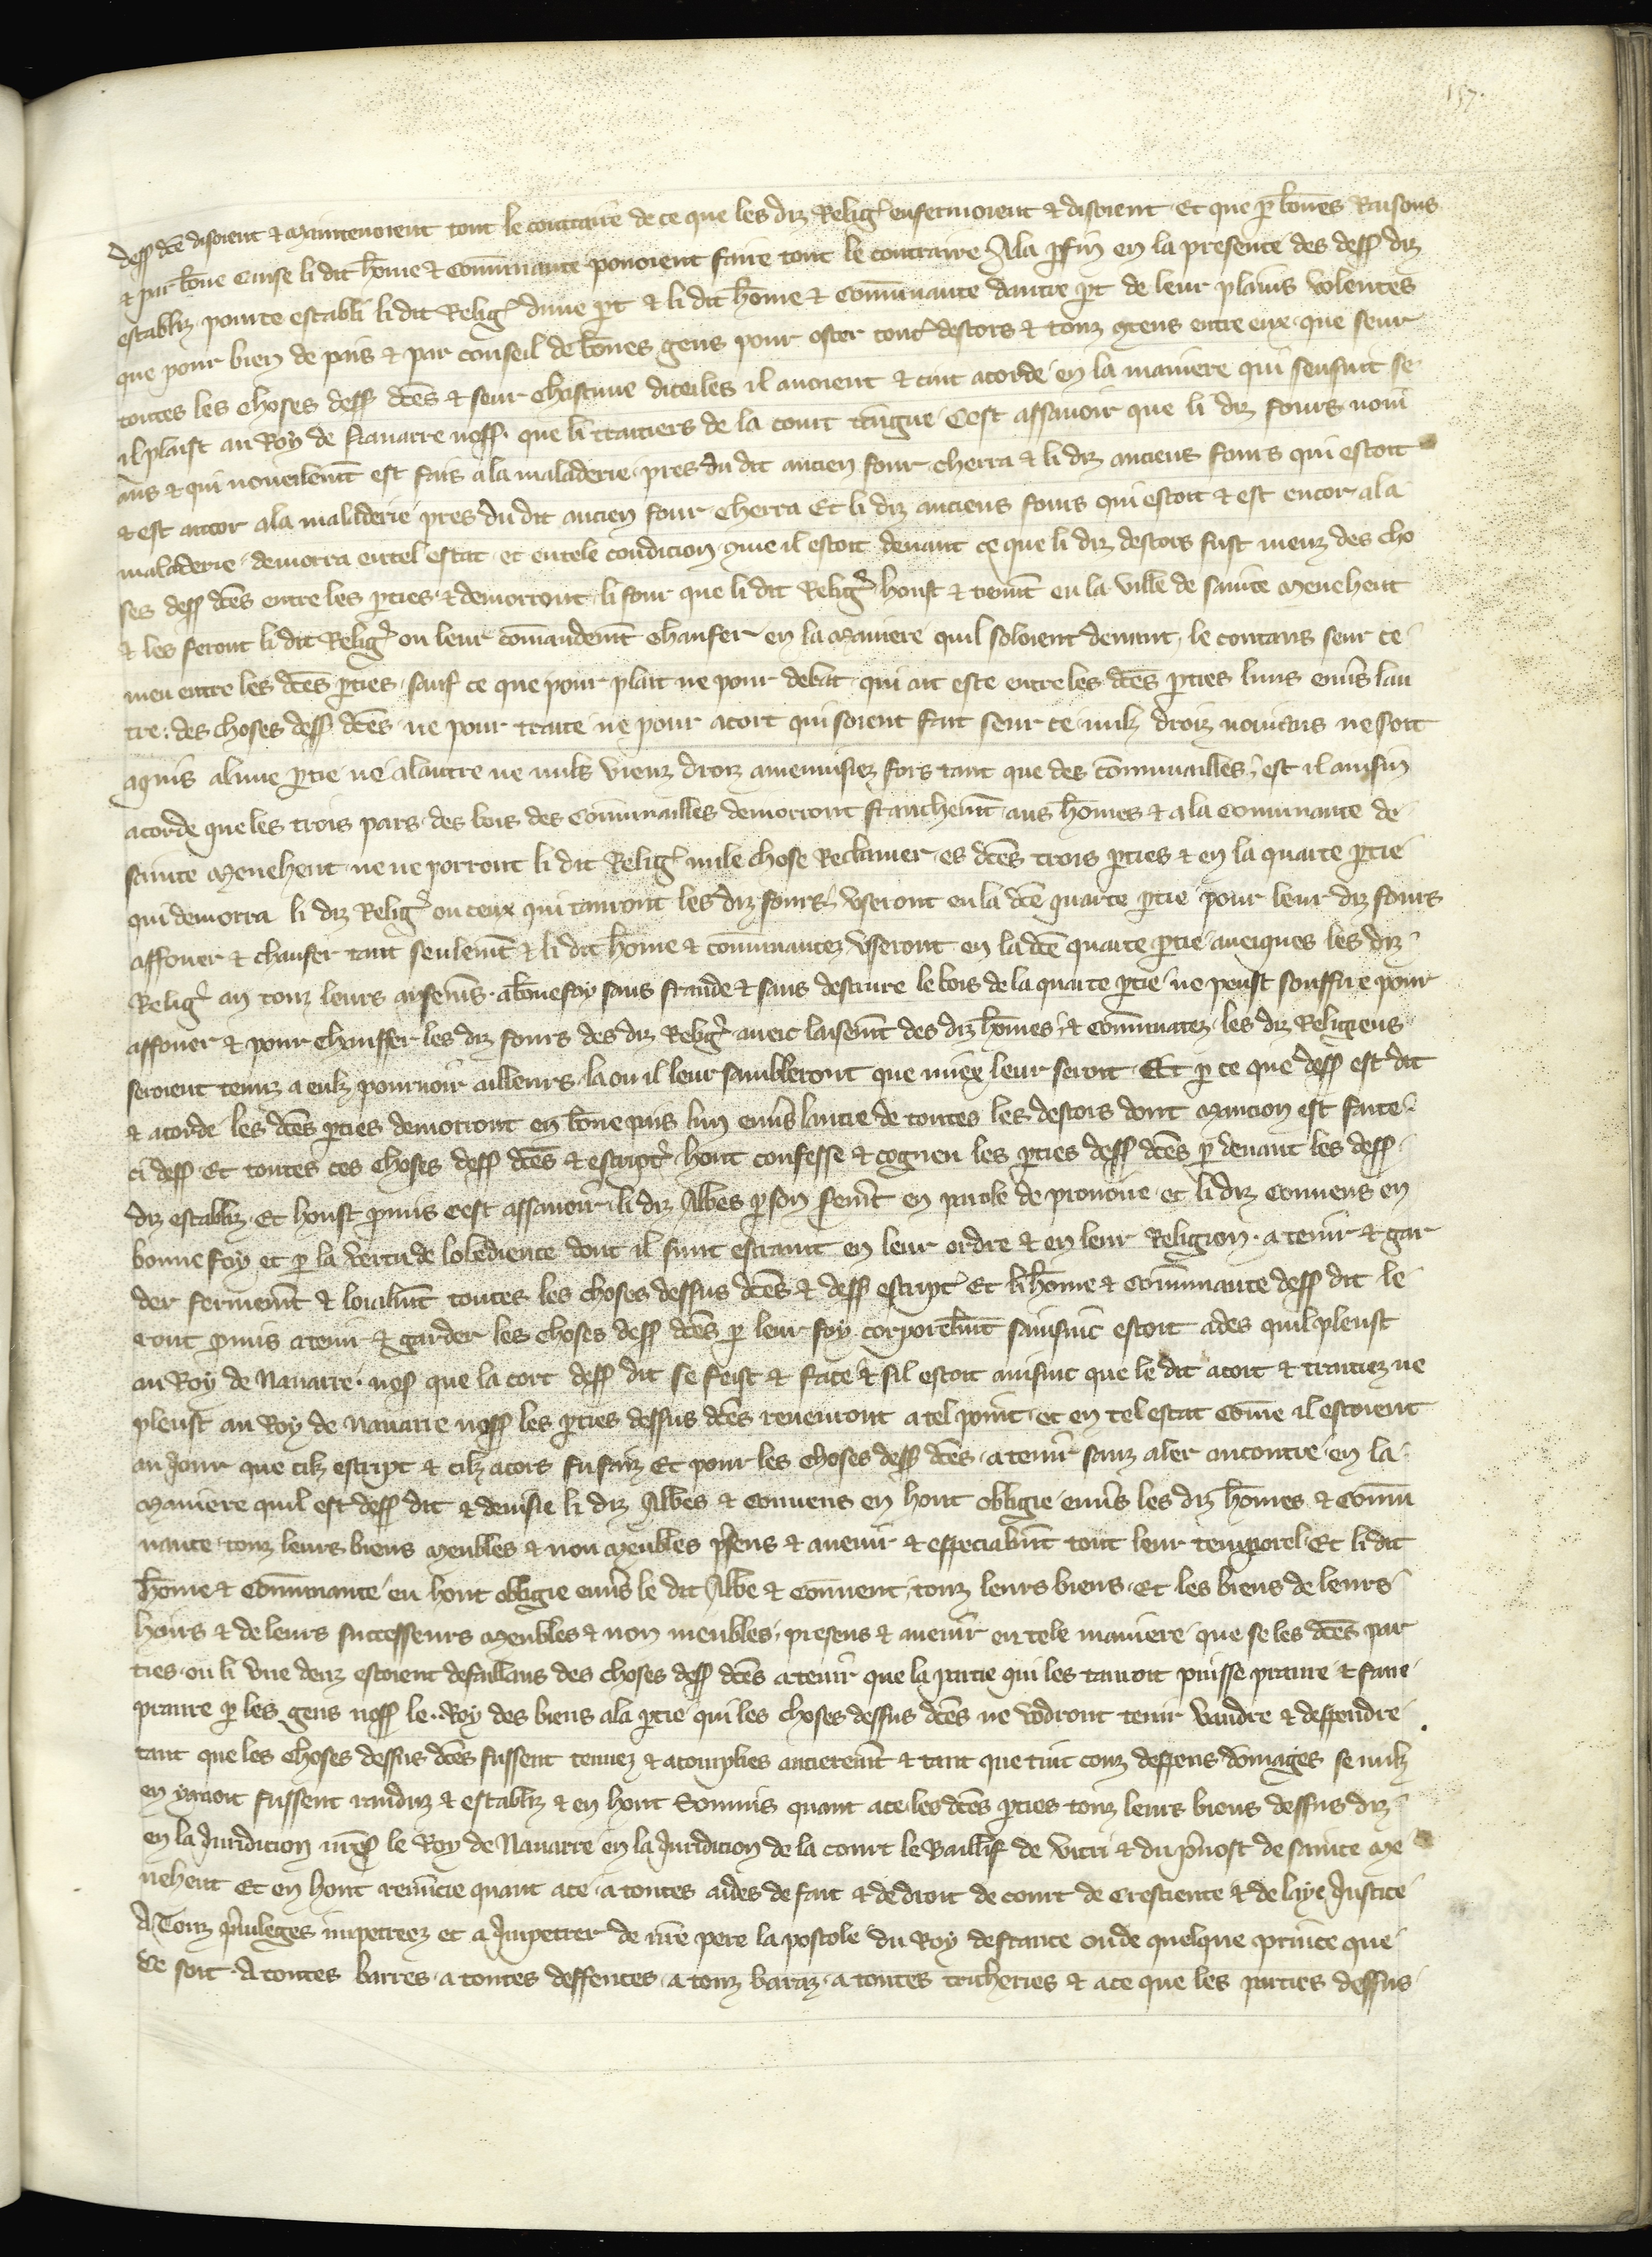 157.
dess dc̄e disoient & maintenoient tout le contraire de ce que les diz Relig̉ enfermoient & disoient Et que ꝑ bōnes Raisons
& par bōne cause li dit hōme & com̄unante pouoient faire tout le contraire Ala ꝑfin en la presence des dess diz
establiz pource establi li dit Relig̉ dune ꝑt & li dit hōme & com̄unante dautre ꝑt de leur plains volentes
que pour bien de pais & par conseil de bōnes gens pour oster touz̉ destors & touz ꝯtens entre eux que seur
toutes les choses dess dc̄es & seur chascune diceiles il auoient & ont acorde en la maniere qui sensuit se
il plaist au Roy de Nauarre noss. que li traitiers de la court teigne Cest assauoir que li diz fours noui
aus & qui nouelem̄t est fais a la maladerie pres du dit ancien four cherra & li diz anciens fours qui estoit
& est ancor a la maladerie pres du dit ancien four cherra Et li diz anciens fours qui estoit & est encor a la
maladerie demorra en tel estat et en tele condicion ꝯme il estoit deuant ce que li diz destors fust meuz des cho
ses dess dc̄es entre les ꝑties & demorront li four que li dit Relig̉ hont & tienēt en la ville de sainte Menehout
& les feront li dit Relig̉ ou leur cōmandem̄t chaufer en la maniere quil soloient deuant le contans seur ce
meu entre les dc̄es ꝑties sauf ce que pour plait ne pour debat qui ait este entre les dc̄es ꝑties luns enuˢ lau
tre: des choses dess dc̄es ne pour traite ne pour acort qui soient fait seur ce nulz droiz nouiaus ne soit
aquis a lune ꝑtie ne a lautre ne nuls vieuz droiz amenuisiez fors tant que des cōmunailles est il ainsin̄
acorde que les trois pars des bois des Com̄unailles demorront franchem̄t aus hōmes & a la Com̄unante de
sainte Menehout ne ne porront li dit Relig̉ nule chose Reclamer es dc̄es trois ꝑties & en la quarte ꝑtie
qui demorra li diz Relig̉ ou ceux qui tanront les diz fours vseront en la dc̄e quarte ꝑtie pour leur diz fours
affouer & chaufer tant seulem̄t & li dit hōme & com̄unantez vseront en la dc̄e quarte ꝑtie aueiques les diz
Relig̉ an touz leurs aisem̄s a bōne foy sans fraude & sans destruire le bois de la quarte ꝑtie ne peust souffire pour
affouer & pour chauffer les diz fours des diz Relig̉ auec laisem̄t des diz hōmes & com̄unatez les diz Religieus
seroient tenuz a eulz pourueoir ailleurs la ou il leur sambleront que miex leur seroit Et ꝑ ce que dess est dit
& acorde les dc̄es ꝑties demorront en bōne pais lun enuˢ lautre de toutes les destors dont mancion est faite
ci dess Et toutes ces choses dess dc̄es & escript̉ hont confesse & cogneu les ꝑties dess dc̄es ꝑ deuant les dess
diz establiz Et houst ꝓmis cest assauoir li diz Abbes ꝑ son serem̄t en parole de prouoire et li diz Conuens en
bonne foy et ꝑ la vertu de lobedience dont il sunt estraint en leur ordre & en leur Religion a tenir & gar
der fermem̄t & loialm̄t toutes les choses dessus dc̄es & dess escript̉ Et li hōme & Com̄unante dess dit le
eont ꝓmis a tenir & garder les choses dess dc̄es ꝑ leur foy corporelm̄t sainsint estoit ades quil pleust
au Roy de Nauarre noss que la cort dess dit se feist & face & sil estoit ainsint que le dit acort & traitiez ne
pleust au Roy de Nauarre noss les ꝑties dessus dc̄es reuenront a tel point et en tel estat come il estoient
au Jour que cilz escript & cilz acors fu faiz Et pour les choses dess dc̄es a tenir sanz aler encontre en la
maniere quil est dess dit & deuisie li diz Abbes & Conuens en hont obligie enuˢ les diz hōmes & Com̄u
nante touz leurs biens meubles & non meubles p̄sens & auenir & especialm̄t tout leur temporel Et li dit
hōme & Com̄unante en hont obligie enuˢ le dit Abbe & Conuent touz leurs biens Et les biens de leurs
hoirs & de leurs successeurs meubles & non meubles presens & auenir en tele maniere que se les dc̄es par
ties ou li vne deuz estoient defaillans des choses dess dc̄es a tenir que la partie qui les tanroit puisse pranre & faire
pranre ꝑ les gens noss le Roy des biens a la ꝑtie qui les choses dessus dc̄es ne vodront tenir vandre & despendre
tant que les choses dessus dc̄es fussent tenuez & acomplies antierem̄t & tant que tuit couz despens domages se nulz
en yauoit fussent randuz & establiz & en hont somnis quant a ce les dc̄es ꝑties touz leurs biens dessus diz
en la Juridicion nr̄e s le Roy de Nauarre en la Juridicion de la court le Baillif de vitri & du p̄uost de sainte Me
nehout Et en hont renuncie quant a ce a toutes aides de fait & de droit de court de Crestiente & de laye Justice
A Touz p̉uileges impetrez et a Impetrer de nr̄e pere lapostole du Roy de france ou de quelque prince que
Ce soit A toutes barres a toutes deffences a touz baraz a toutes tricheries & a ce que les parties dessus